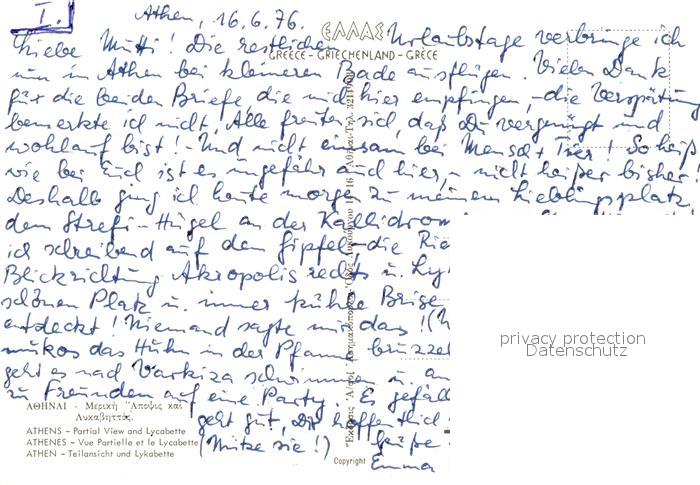 I.
Athen, 16.6.76.
ΕΛΛΑΣ
GREECE - GRIECHENLAND - GRÈCE
Liebe Mutti! Die restlichen Urlaubstage verbringe ich
nun in Athen bei kleineren Badeausflügen. Vielen Dank
für die beiden Briefe, die mich hier empfingen, die Verspätung
bemerkte ich nicht. Alle freuten sich, daß Du vergnügt und
wohlauf bist! Und nicht einsam bei Mensch + Tier! So heiß
wie bei Euch ist es ungefähr auch hier, nicht heißer bisher!
Deshalb ging ich heute morgen zu meinem Lieblingsplatz,
dem Strefi-Hügel an der Kallidrom
ich schreibend auf dem Gipfel die
Blickrichtung Akropolis rechts u. Ly
schönen Platz u. immer kühle Brise
entdeckt! Niemand sagte mir das!
das Huhn in der Pfanne
geht es nach Varkiza schwimmen u. an
zu Freunden auf eine Party. Es gefäll
geht gut, Dir hoffentlich
(Mütze sie!) Grüße
Emma
ΑΘΗΝΑΙ - Μερική Ἄποψις καί
Λυκαβηττός.
ATHENS - Partial View and Lycabette
ATHENES - Vue Partielle et le Lycabette
ATHEN - Teilansicht und Lykabette
Copyright
privacy protection
Datenschutz